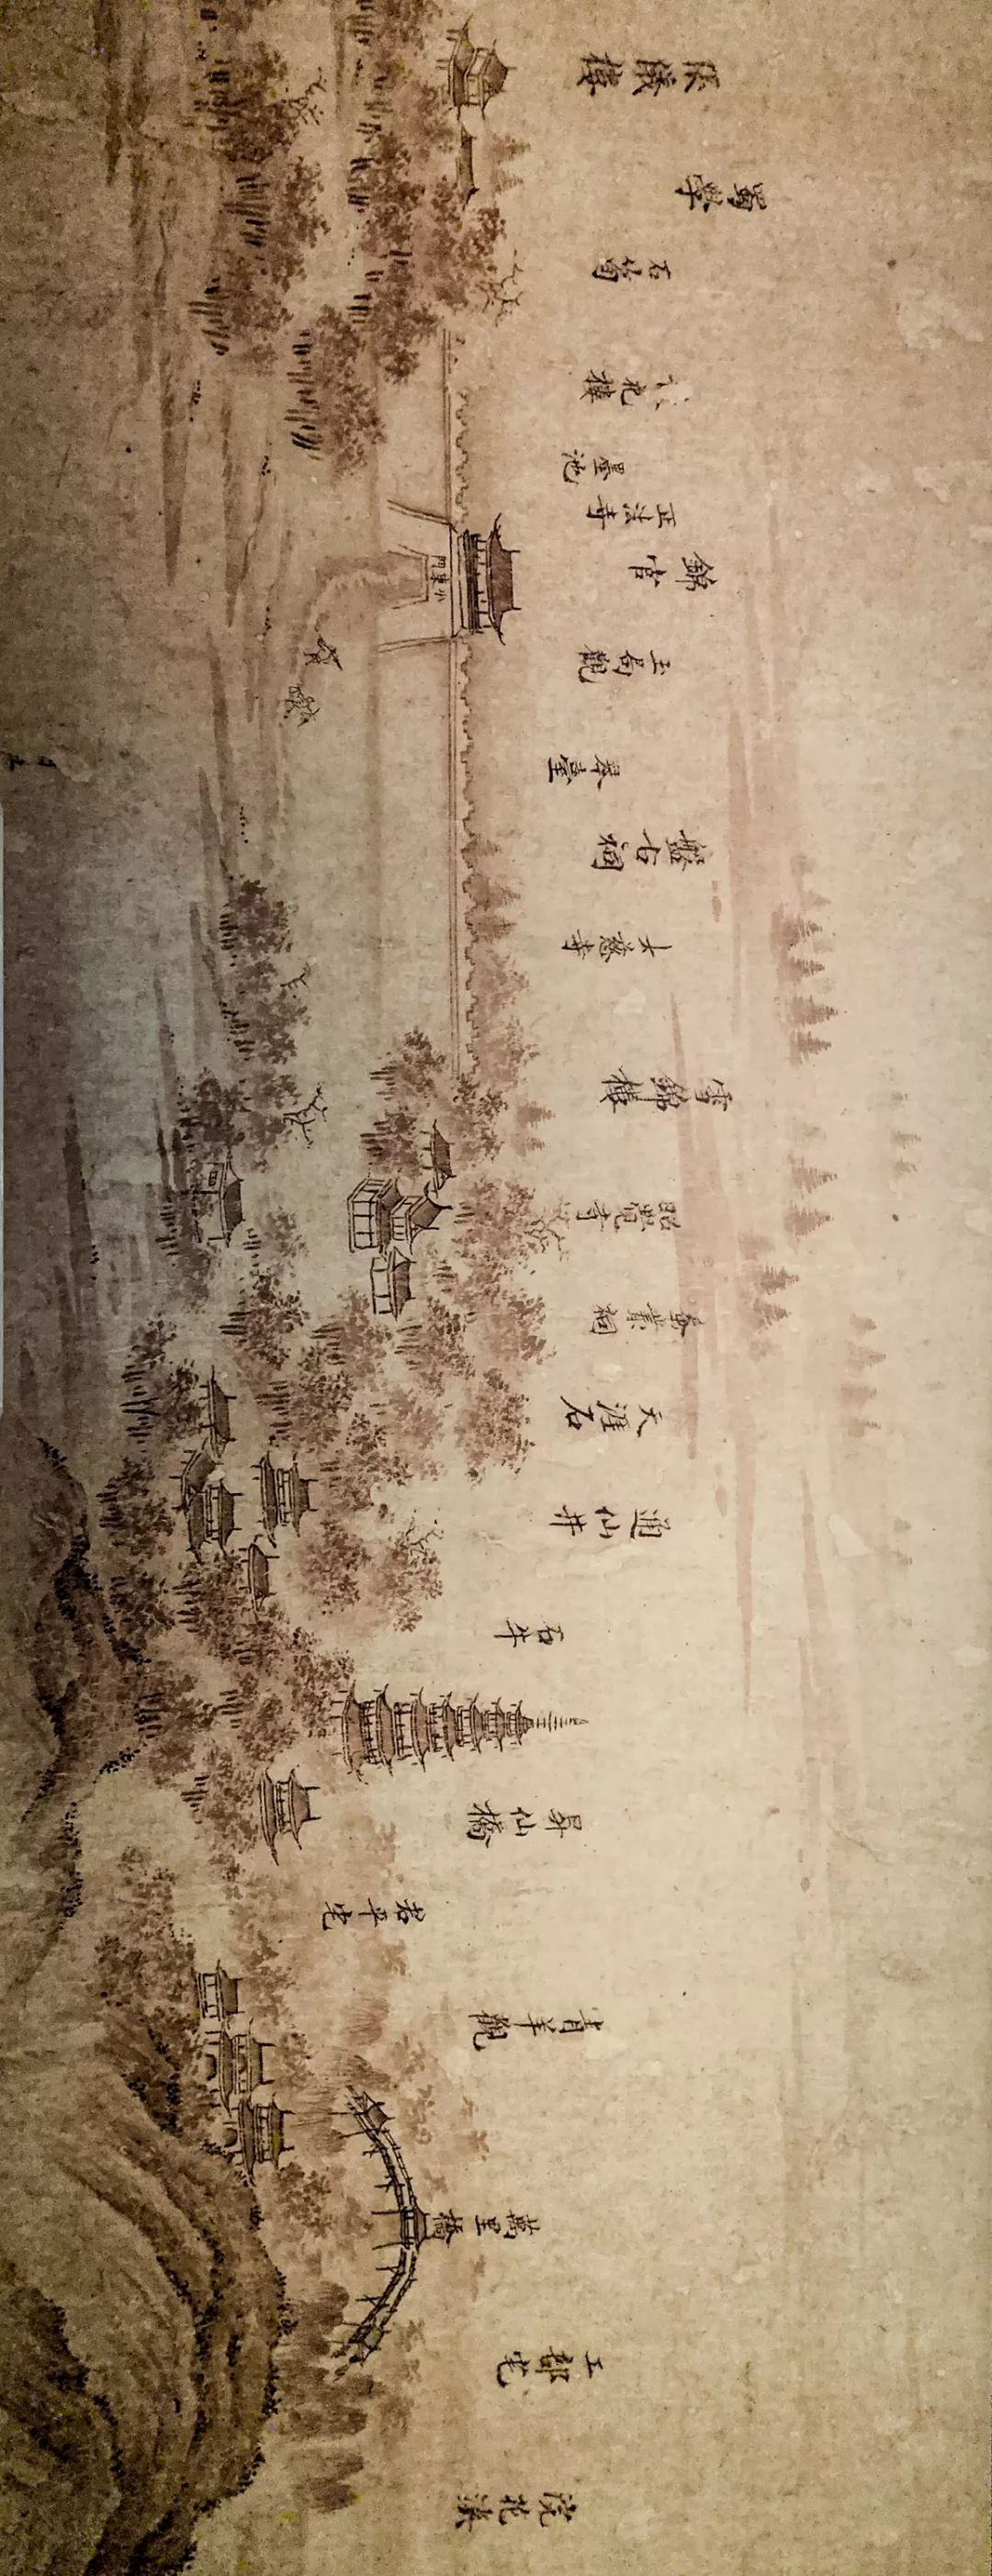 浣花溪
工部宅
萬里橋
青羊觀
君平宅
昇仙橋
石牛
通仙井
天涯石
蠶叢祠
昭覺寺
雪錦樓
大慈寺
盤古祠
琴臺
玉局觀
錦官
小東門
正法寺
墨池
樓
石筍
蜀學
張儀樓